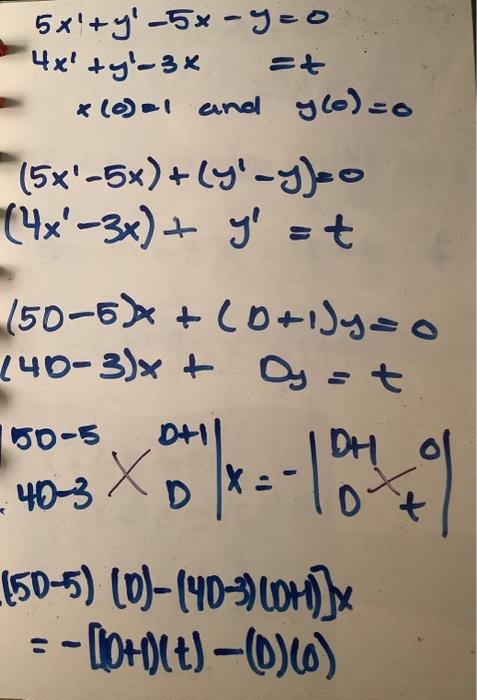 5x'+y'-5x-y=0
4x'+y'-3x =t
x(0)=1 and y(0)=0
(5x'-5x)+(y'-y)=0
(4x'-3x)+ y' =t
(5D-5)x + (D+1)y=0
(4D-3)x + Dy = t
5D-5 D+1| |D+1 0|
4D-3 D |x=-|D t|
(5D-5) (D)-(4D-3)(D+1)]x
= -[(D+1)(t)-(D)(0)